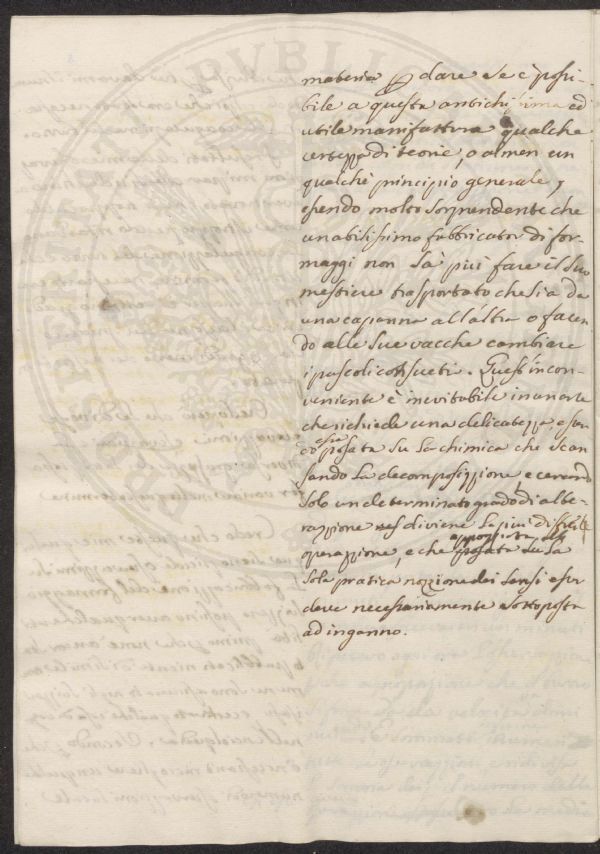 materia p dare se è possi-
bile a questa antichissima ed
utile manifattura qualche
certezza di teorie, o almen un
qualche principio generale,
essendo molto sorprendente che
un abilissimo fabbricator di for-
maggi non sà più fare il suo
mestiere trasportato che sia da
una capanna all'altra o facen-
do alle sue vacche cambiare
i pascoli consueti. Quest'incon-
veniente è inevitabile in un'arte
che richiede una delicatezza, essen-
do essa posata su la chimica che scan-
sando la decomposizzione, e cercando
solo un determinato grado di alte-
razzione ne diviene la più difficile
operazzione, e che appoggiata su la
sola pratica nozzione dei sensi esser
deve necessariamente sottoposta
ad inganno.
PVBLIC